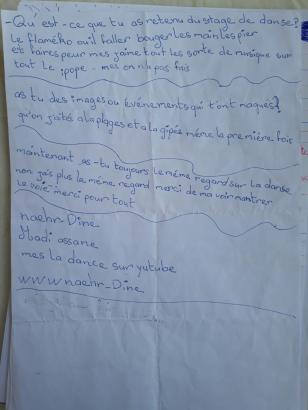 -Qu est-ce que tu as retenu du stage de danse?
Le flaméko ou il faller bouger les main les pier
et faires peur mes j'aime tout les sorte de musique sur
tout le ipope - mes on n'a pas fais
as tu des images ou événements qui t'ont maques?
qu'on j'aités a la plages et a la
même la première fois
maintenant as-tu toujours le même regard sur la danse
non j'ais plus la même regard merci de ma voir montrer
le voie merci pour tout
naehr_Dine
Madi assane
mes la dance sur yutube
www naehr_Dine